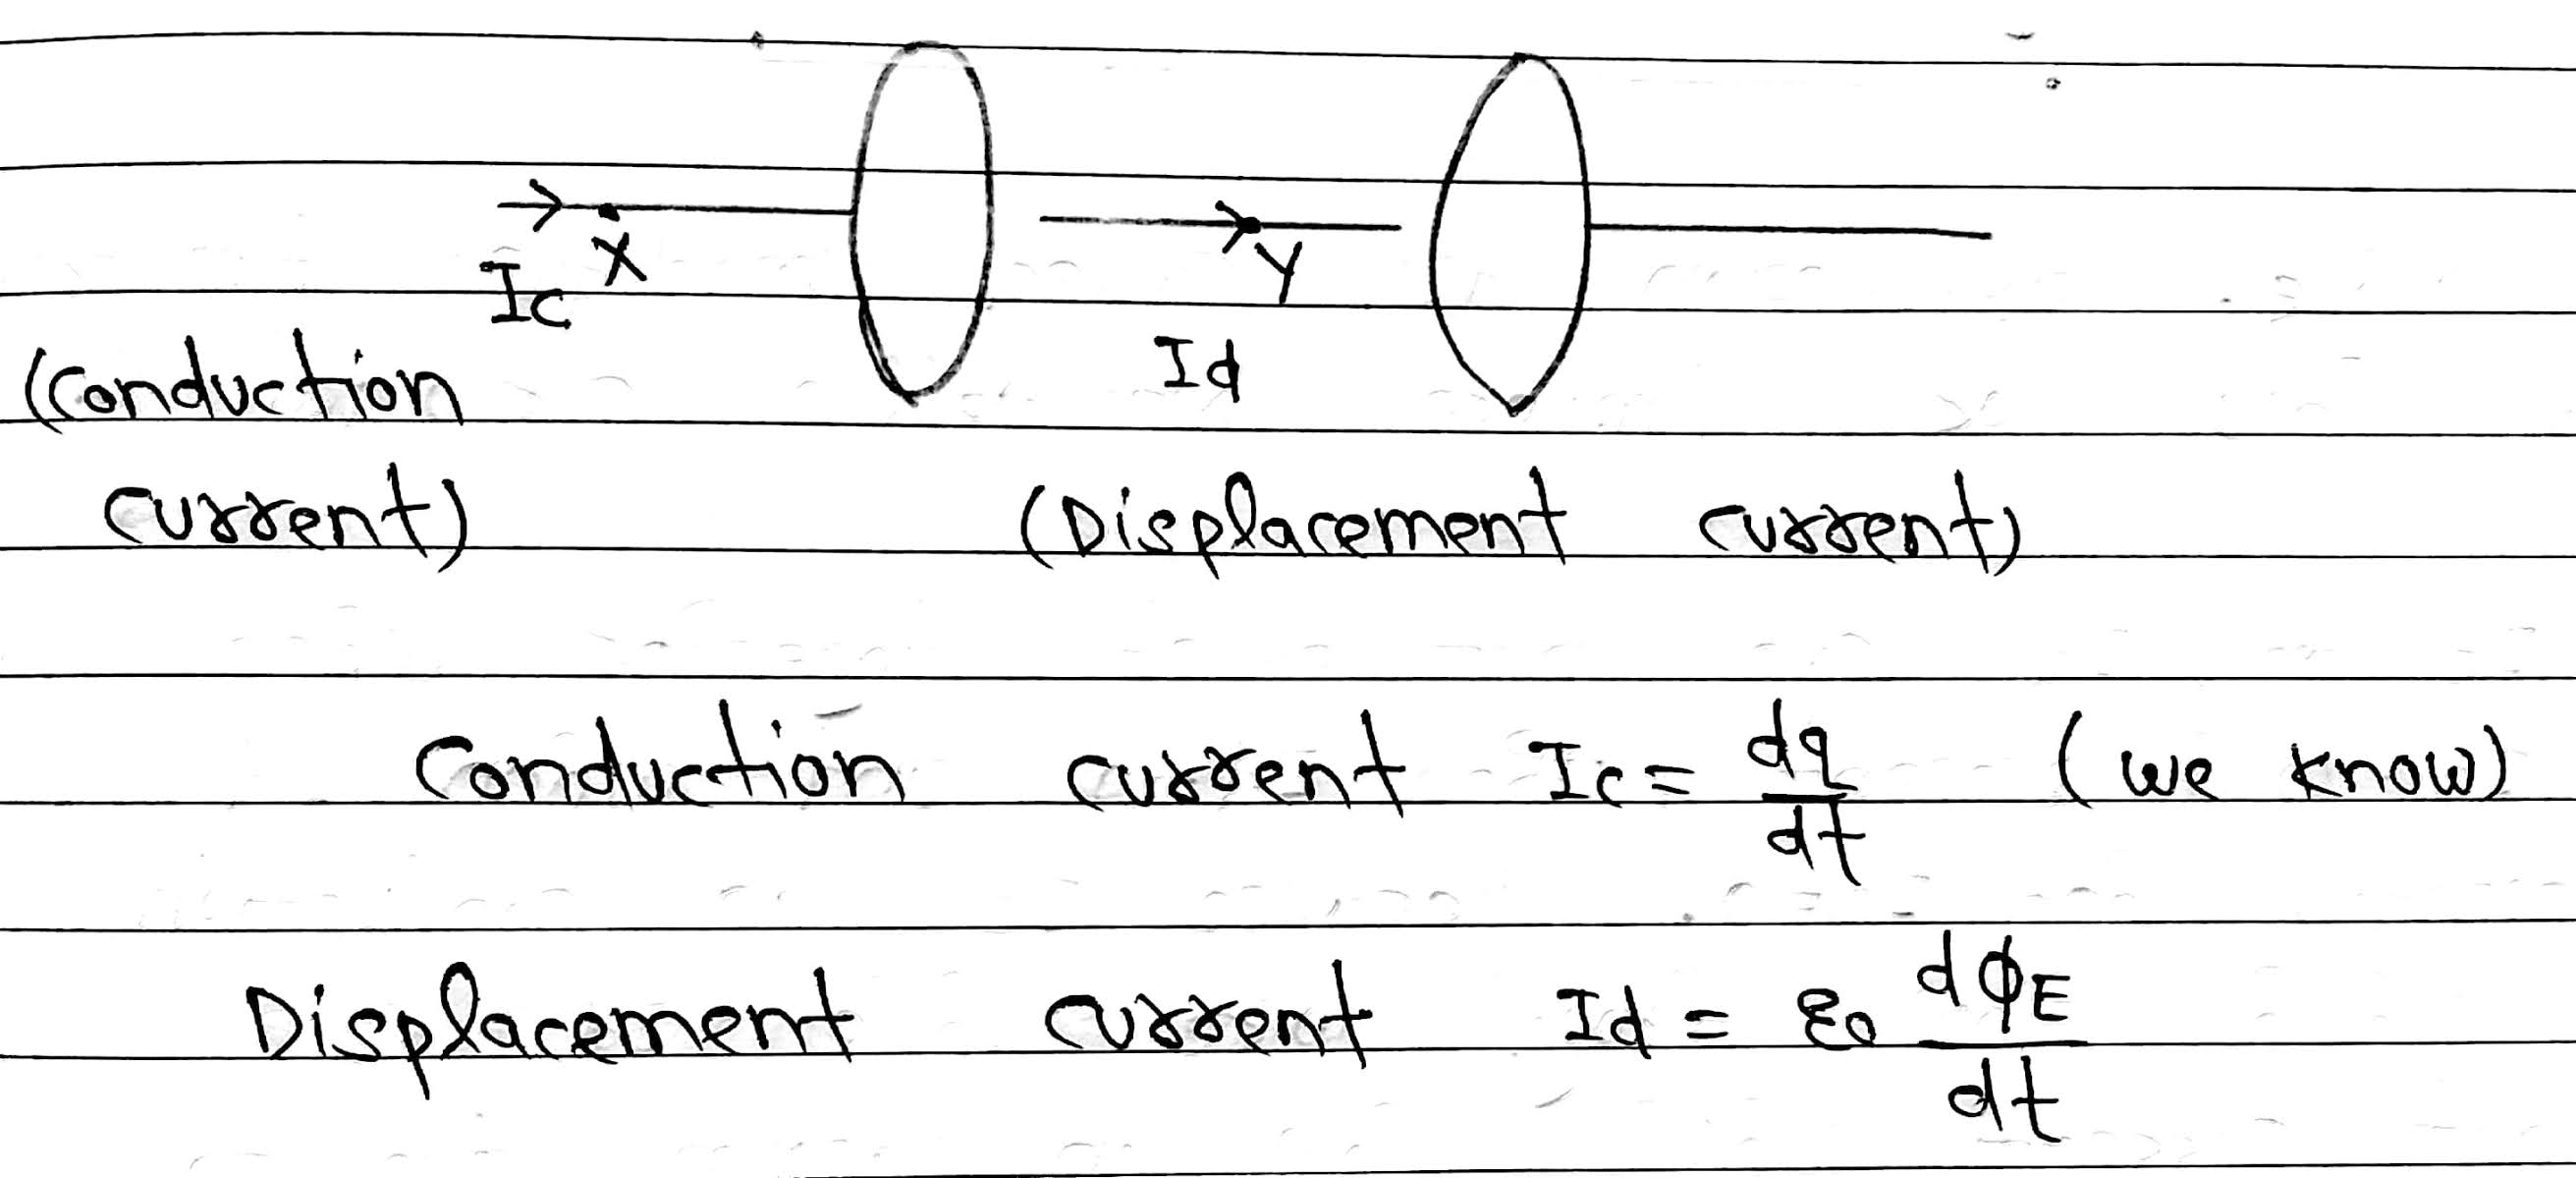 X Y
Ic Id
(conduction
current) (Displacement current)
Conduction current Ic = dq/dt (we know)
Displacement current Id = ε0 dϕE/dt